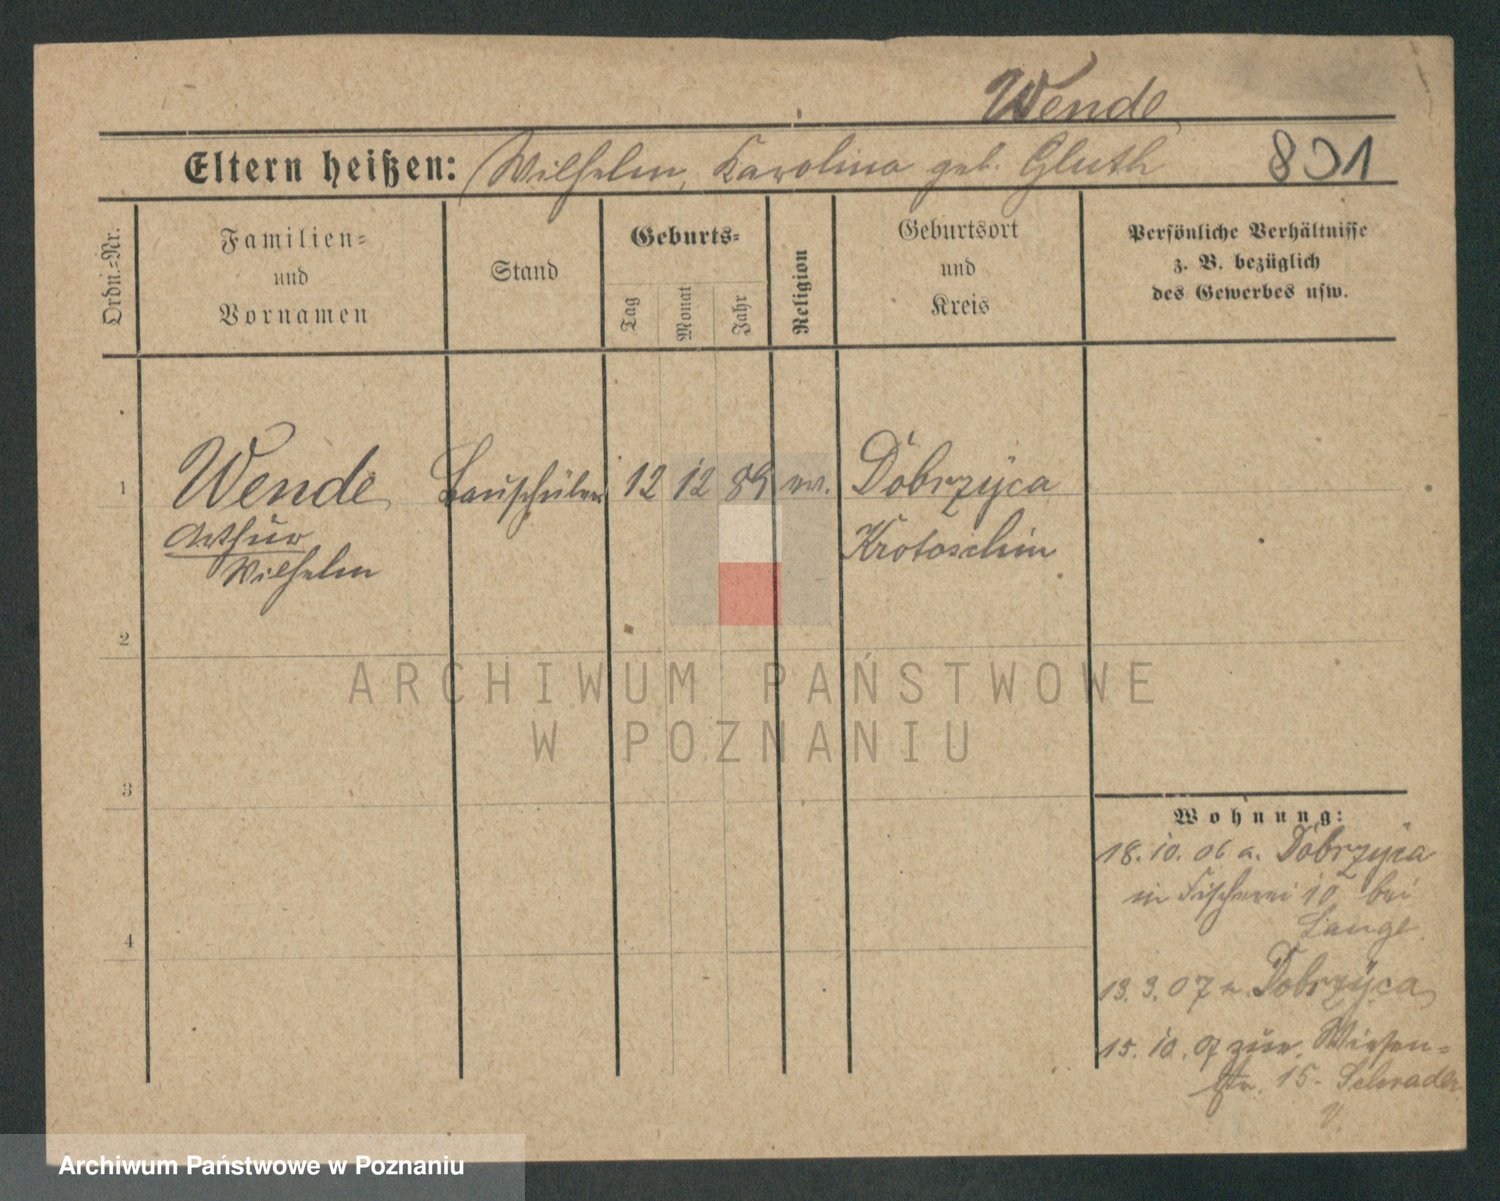 Wende
Eltern heißen: Wilhelm, Karolina geb. Gluth 801
Ordn.-Nr.
Familien-
und
Vornamen
Stand
Geburts-
Tag
Monat
Jahr
Religion
Geburtsort
und
Kreis
Persönliche Verhältnisse
z. B. bezüglich
des Gewerbes usw.
1 Wende Bauschüler 12 12 89 ev. Dobrzyca
Arthur Krotoschin
Wilhelm
2
3
4
Wohnung:
18. 10. 06 a. Dobrzyca
in Fischerei 10 bei
Lange
13. 3. 07 n. Dobrzyca
15. 10. 07 zur. Wiesen-
str. 15. Schrader
ARCHIWUM PAŃSTWOWE
W POZNANIU
Archiwum Państwowe w Poznaniu